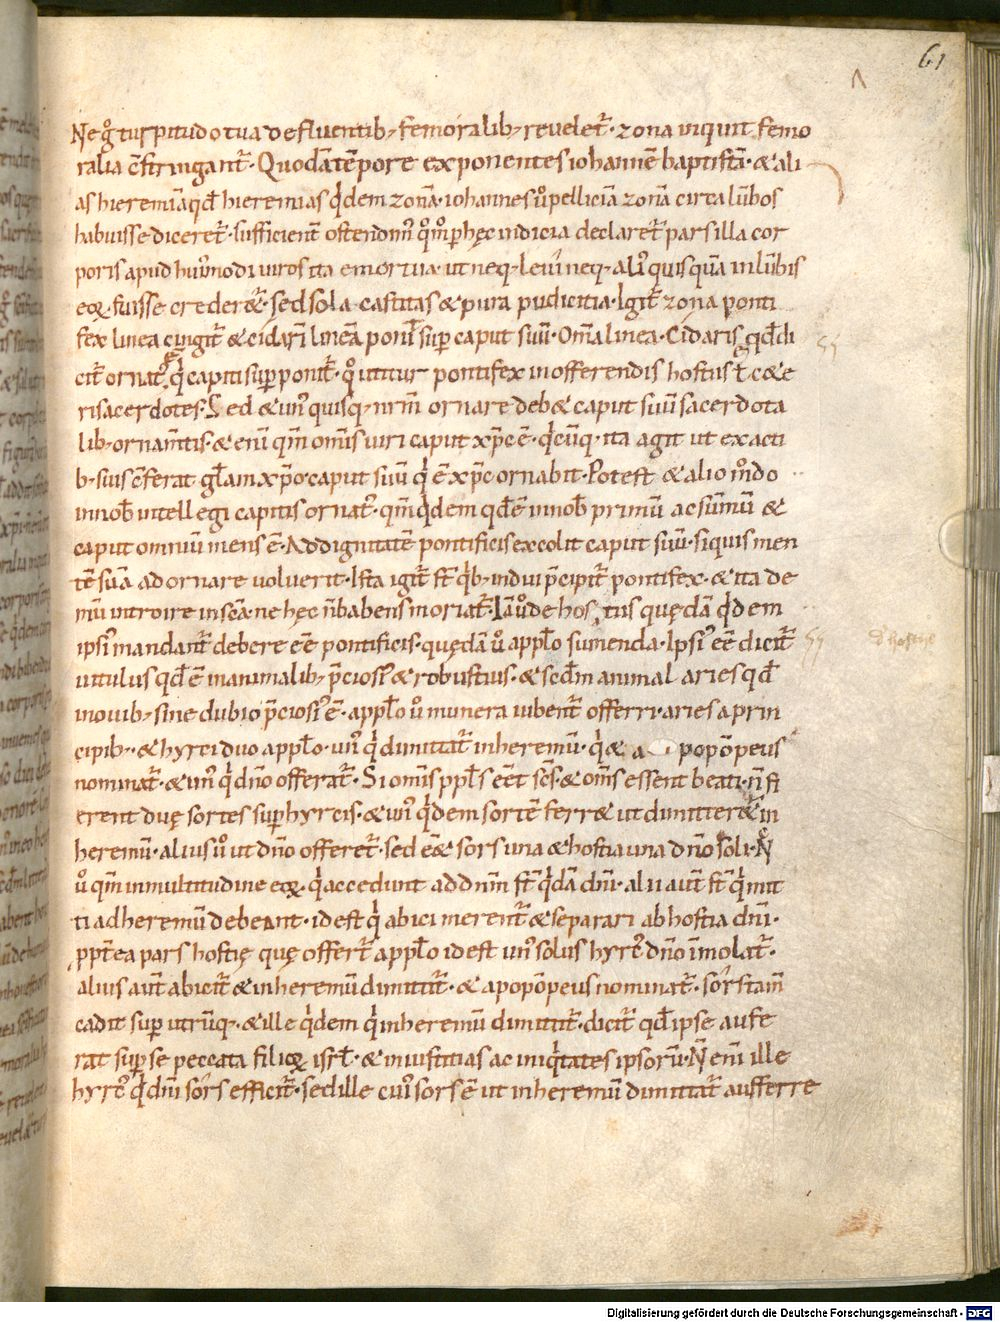 61
Ne gͦ turpitudo tua defluentib; femoralib; reueletᷣ. zona inquit femo
ralia c̄stringantᷣ. Quodā tēpore exponentes iohannē baptistā. & ali
as hieremiā qđ hieremias qͥdem zonā. iohannes ůpelliciā zonā circa lūbos
habuisse diceretᷣ. sufficient̄ ostendimꝰ qͦmͦ ꝑ hęc indicia declaretᷣ pars illa cor
poris apud huiꝰmodi uiros ita emortua. ut neq; leui neq; aliꝰ quisquā in lūbis
eoꝝ fuisse crederetᷣ. sed sola castitas & pura pudicitia. Igitᷣ zona ponti
fex linea cingitᷣ & cidarī lineā ponit suꝑ caput suū. Om̄a linea. Cidaris qđ di
citᷣ ornatꝰ qͥ capiti suꝑponitᷣ. qͦ utitur pontifex in offerendis hostiis ł cæte
ri sacerdotes. Sed & unꝰquisq; nr̄m ornare deb& caput suū sacerdota
lib; ornam̄tis. & enī qm̄ om̄is uiri caput xp̄c ē. qͥcūq; ita agit ut ex acti
b; suis c̄ferat gl̄am xp̄o. caput suū qͥ ē xp̄c ornabit. Potest & alio modo
in nob̄ intellegi capitis ornatꝰ. qm̄ qͥdem qđ ē in nob̄ primū ac sūmū &
caput omniū mens ē. Ad dignitatē pontificis excolit caput suū. si quis men
tē suā adornare uoluerit. Ista igitᷣ st̄ qͥb; indui p̄cipitᷣ pontifex. & ita de
mū introire in sc̄a. ne hęc n̄ habens moriatᷣ. Iā ůde hostiis quędā qͥdem
ipsiꝰ mandantᷣ debere eē pontificis. quędā ů a ppl̄o sumenda. Ipsiꝰ eē dicitᷣ
uitulus qđ ē in animalib; p̄ciosiꝰ & robustius. & sc̄dm animal aries qđ
in ouib; sine dubio p̄ciosiꝰ ē. a ppl̄o ů munera iubentᷣ offerri. aries a prin
cipib;. & hyrci duo a ppl̄o. unꝰ qͥ dimittatᷣ in heremū. qͥ & a popōpeus
nominatᷣ. & unꝰ qͥ dn̄o offeratᷣ. Si om̄is ppl̄s eēt sc̄s. & om̄s essent beati. n̄ fi
erent duę sortes suꝑ hyrcis. & unꝰ qͥdem sortē ferr& ut dimitteretᷣ in
heremū. alius ů ut dn̄o offeretᷣ. sed eēt sors una & hostia una dn̄o soli. Nͨ
ů qm̄ in multitudine eoꝝ qͥ accedunt ad dn̄m st̄ qͥdā dn̄i. alii aut̄ st̄ qͥ mit
ti ad heremū debeant. id est qͥ abici merentᷣ & separari ab hostia dn̄i.
ꝓpt̄ea pars hostię quę offertᷣ a ppl̄o id est unꝰ solus hyrcꝰ dn̄o īmolatᷣ.
alius aut̄ abicitᷣ & in heremū dimittitᷣ. & apopōpeus nominatᷣ. sors tam̄
cadit suꝑ utrūq;. & ille qͥdem qͥ in heremū dimittitᷣ. dicitᷣ qđ ipse aufe
rat suꝑ se peccata filioꝝ isrł. & iniustitias ac iniqͥtates ipsorū. N̄ enī ille
hyrcꝰ qͥ dn̄i sors efficitᷣ. sed ille cuiꝰ sors ē ut in heremū dimittatᷣ aufferre
Digitalisierung gefördert durch die Deutsche Forschungsgemeinschaft - DFG